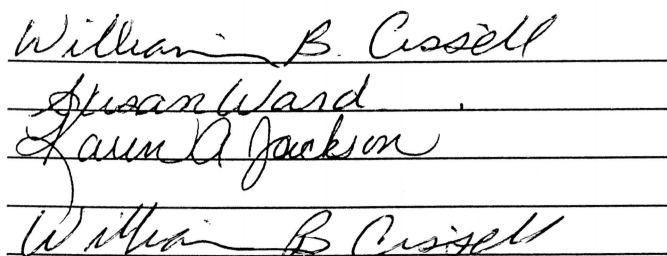 William B. Cissell
Susan Ward
Karen A Jackson
William B Cissell